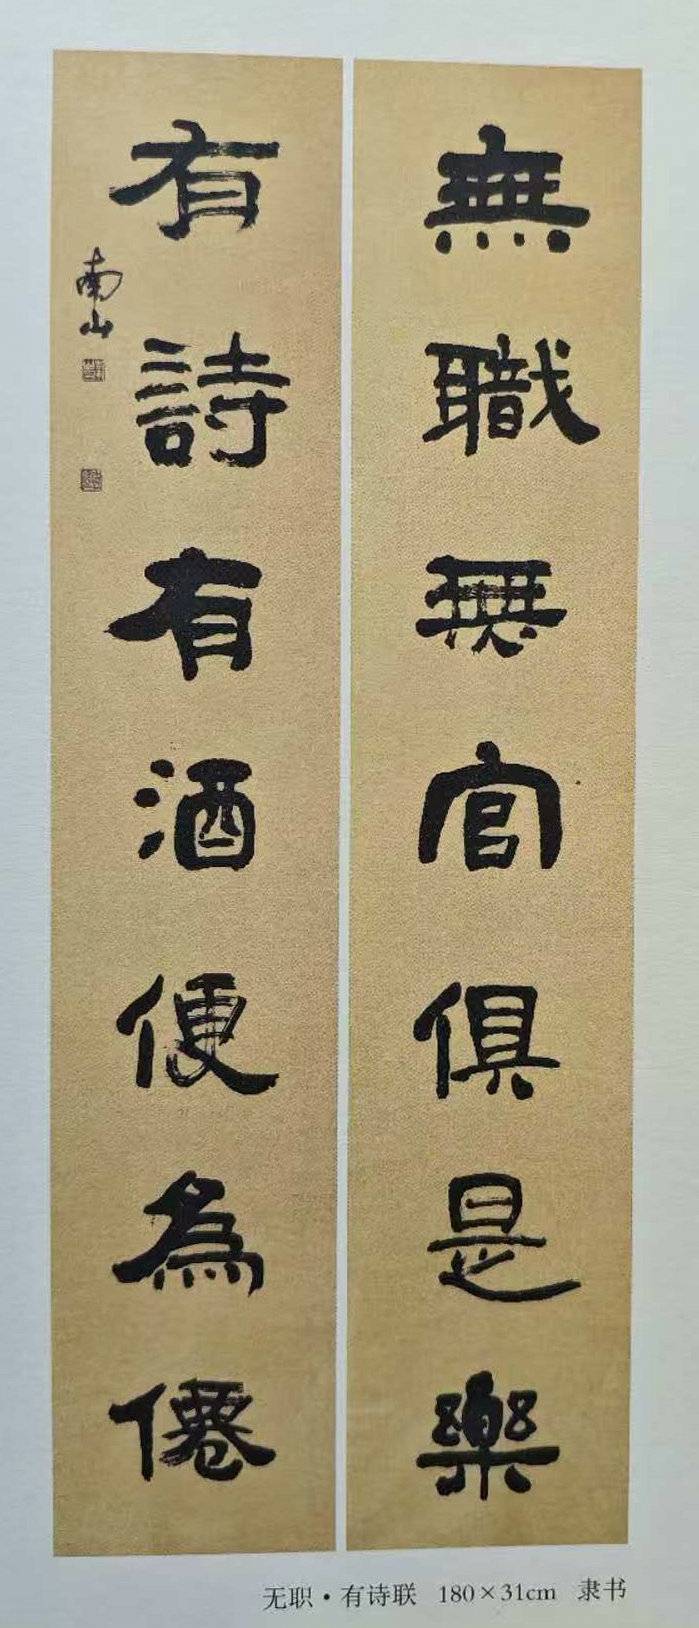 無職無官俱是樂
有詩有酒便為僊
南山
无职·有诗联 180×31cm 隶书